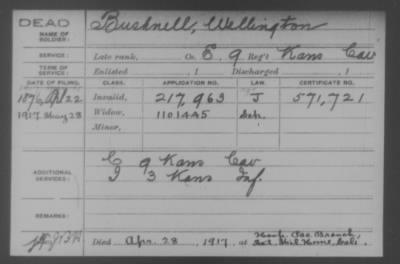 DEAD
NAME OF SOLDIER:
Bushnell, Wellington
SERVICE:
Late rank, Co. E, 9 Reg't Kans Cav
TERM OF SERVICE:
Enlisted , 1 Discharged , 1
DATE OF FILING. CLASS. APPLICATION NO. LAW. CERTIFICATE NO.
1876, Apl 22 Invalid, 217,963 J 571,721
1917 May 28 Widow, 1101445
Minor,
ADDITIONAL SERVICES:
E 9 Kans Cav
I 3 Kans Inf.
REMARKS:
Died Apr. 28, 1917, at Hosp. Pac. Branch,
Nat. Mil Home, Cali.